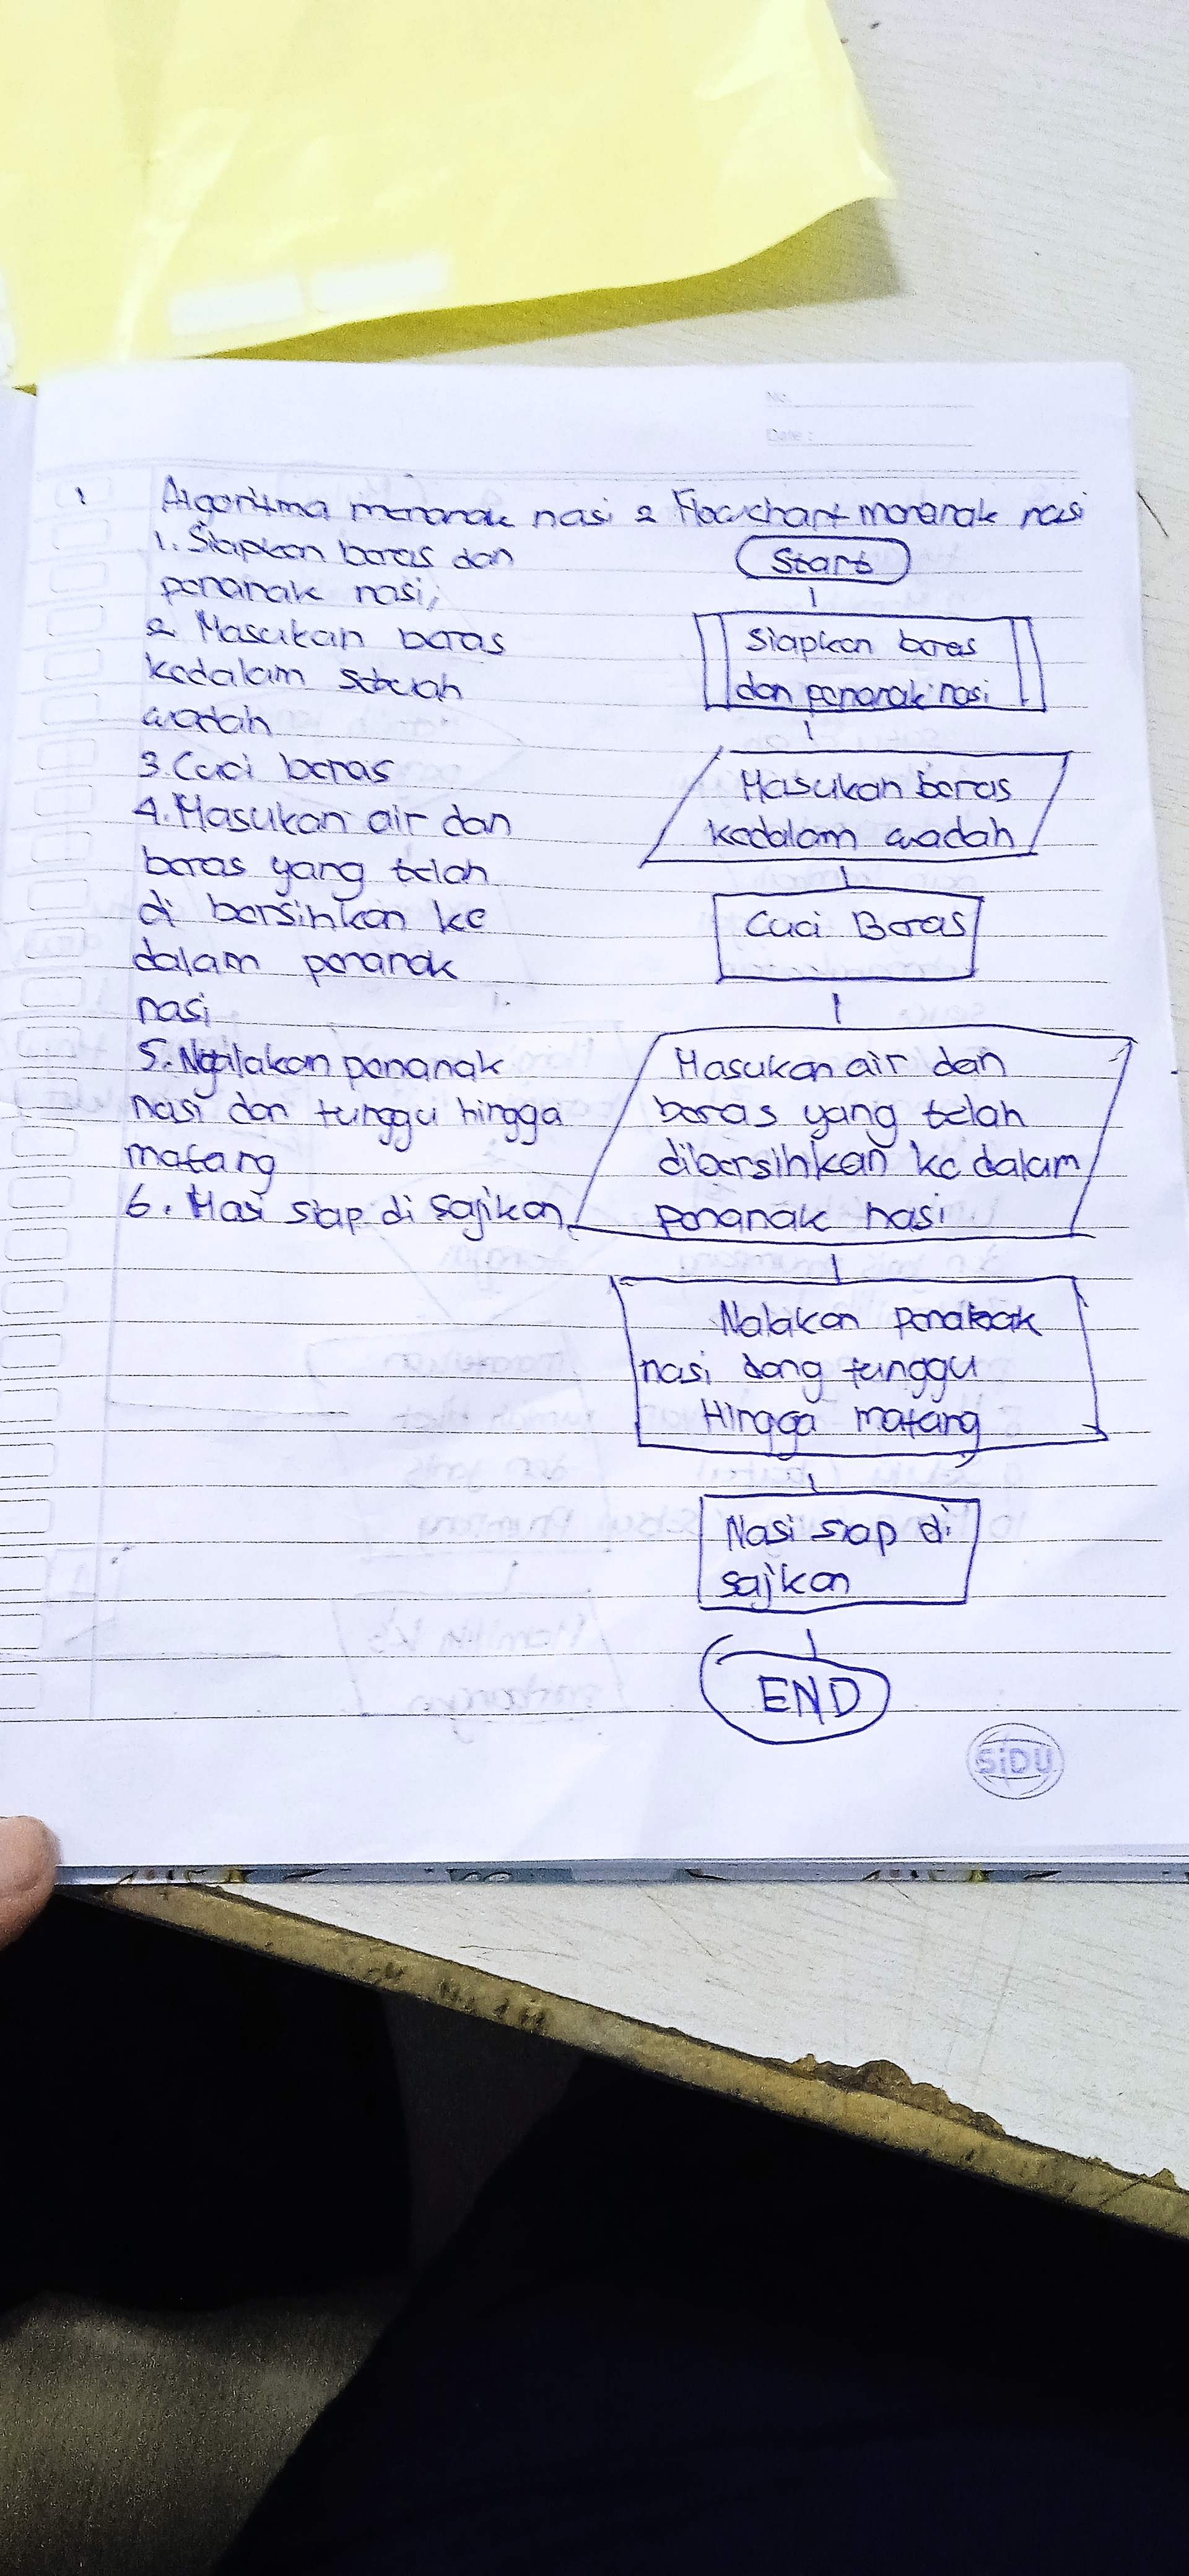 No.
Date :
1 Algoritma menanak nasi
1. Siapkan beras dan
penanak nasi,
2 Masukan beras
kedalam sebuah
wadah
3. Cuci beras
4. Masukan air dan
beras yang telah
di bersihkan ke
dalam penanak
nasi
5. Nyalakan penanak
nasi dan tunggu hingga
matang
6. Nasi siap di sajikan
2 Flowchart menanak nasi
Start
Siapkan beras
dan penanak nasi
Masukan beras
kedalam wadah
Cuci Beras
Masukan air dan
beras yang telah
dibersihkan ke dalam
penanak nasi
Nalakan
nasi dang tunggu
Hingga matang
Nasi siap di
sajikan
END
SiDU